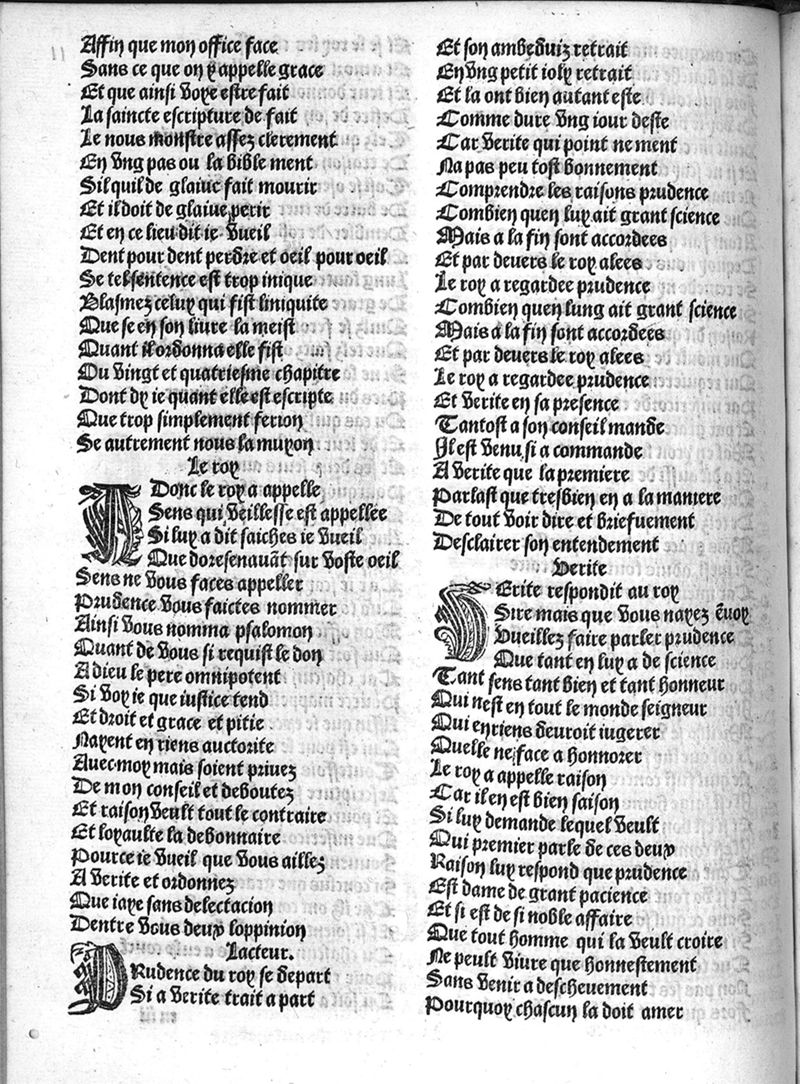 Affin que mon office face
Sans ce que on y appelle grace
Et que ainsi voye estre fait
La saincte escripture de fait
Le nous monstre assez clerement
En ung pas ou la bible ment
Sil quil de glaiue fait mourir
Et il doit de glaiue perir
Et en ce lieu dit ie vueil
Dent pour dent perdre et oeil pour oeil
Se tel sentence est trop inique
Blasmez celuy qui fist liniquite
Que se en son liure la meist
Quant il ordonna elle fist
Ou vingt et quatriesme chapitre
Dont dy ie quant elle est escripte
Que trop simplement ferion
Se autrement nous la muyon
Le roy
ADonc le roy a appelle
Sens qui veillesse est appellee
Si luy a dit saiches ie vueil
Que doresenauãt sur voste oeil
Sens ne vous faces appeller
Prudence vous faictes nommer
Ainsi vous nomma psalomon
Quant de vous si requist le don
A dieu le pere omnipotent
Si voy ie que iustice tend
Et droit et grace et pitie
Nayent en riens auctorite
Auec moy mais soient priuez
De mon conseil et deboutez
Et raison veult tout le contraire
Et loyaulte la debonnaire
Pource ie vueil que vous aillez
A verite et ordonnez
Que iaye sans delectacion
Dentre vous deux loppinion
Lacteur.
PRudence du roy se depart
Si a verite trait a part
Et son ambeduiz retrait
En ung petit ioly retrait
Et la ont bien autant este
Comme dure ung iour deste
Car verite qui point ne ment
Na pas peu tost bonnement
Comprendre les raisons prudence
Combien quen luy ait grant science
Mais a la fin sont accordees
Et par deuers le roy alees
Le roy a regardee prudence
Combien quen lung ait grant science
Mais a la fin sont accordees
Et par deuers le roy alees
Le roy a regardee prudence
Et verite en sa presence
Tantost a son conseil mande
Il est venu si a commande
A verite que la premiere
Parlast que tresbien en a la maniere
De tout voir dire et briefuement
Desclairer son entendement
Verite
VErite respondit au roy
Sire mais que vous nayez ẽnoy
Vueillez faire parler prudence
Que tant en luy a de science
Tant sens tant bien et tant honneur
Qui nest en tout le monde seigneur
Qui en riens deuroit iugerer
Quelle ne face a honnorer
Le roy a appelle raison
Car il en est bien saison
Si luy demande lequel veult
Qui premier parle de ces deux
Raison luy respond que prudence
Est dame de grant pacience
Et si est de si noble affaire
Que tout homme qui la veult croire
Ne peult viure que honnestement
Sans venir a descheuement
Pourquoy chascun la doit amer